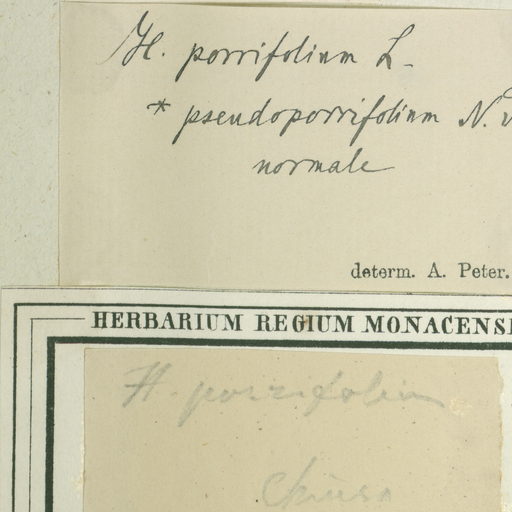 H. porrifolium L.
* pseudoporrifolium N.
normale
determ. A. Peter.
HERBARIUM REGIUM MONACENS
H. porrifolium